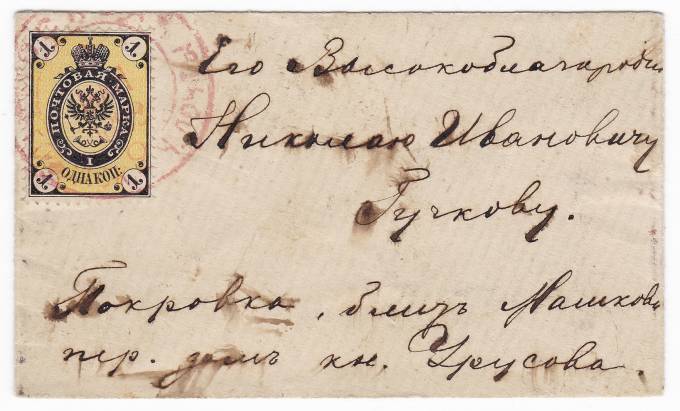 1 1
ПОЧТОВАЯ МАРКА
I
ОДНА КОП:
1 1
Его Высокоблагородiю
Николаю Ивановичу
Гучкову.
Покровка, близъ Машкова
пер. домъ кн. Урусова.